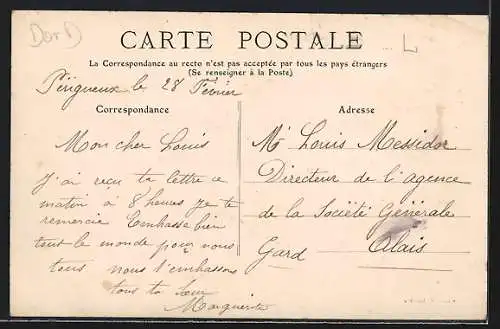 Dord
L
CARTE POSTALE
La Correspondance au recto n'est pas acceptée par tous les pays étrangers
(Se renseigner à la Poste)
Périgueux le 28 Février
Correspondance
Adresse
Mon cher Louis
J'ai reçu ta lettre ce
matin à 8 heures je te
remercie Embrasse bien
tout le monde pour nous
tous nous t'embrassons
tous ta
Marguerite
Mr Louis Messidor
Directeur de l'agence
de la Société Générale
Alais
Gard